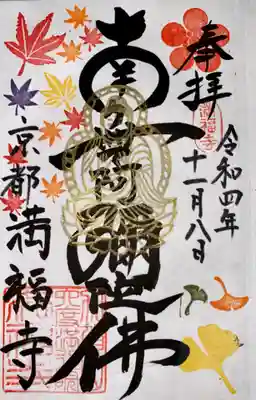 奉拝
令和四年
十一月八日
南無阿弥陀佛
京都満福寺